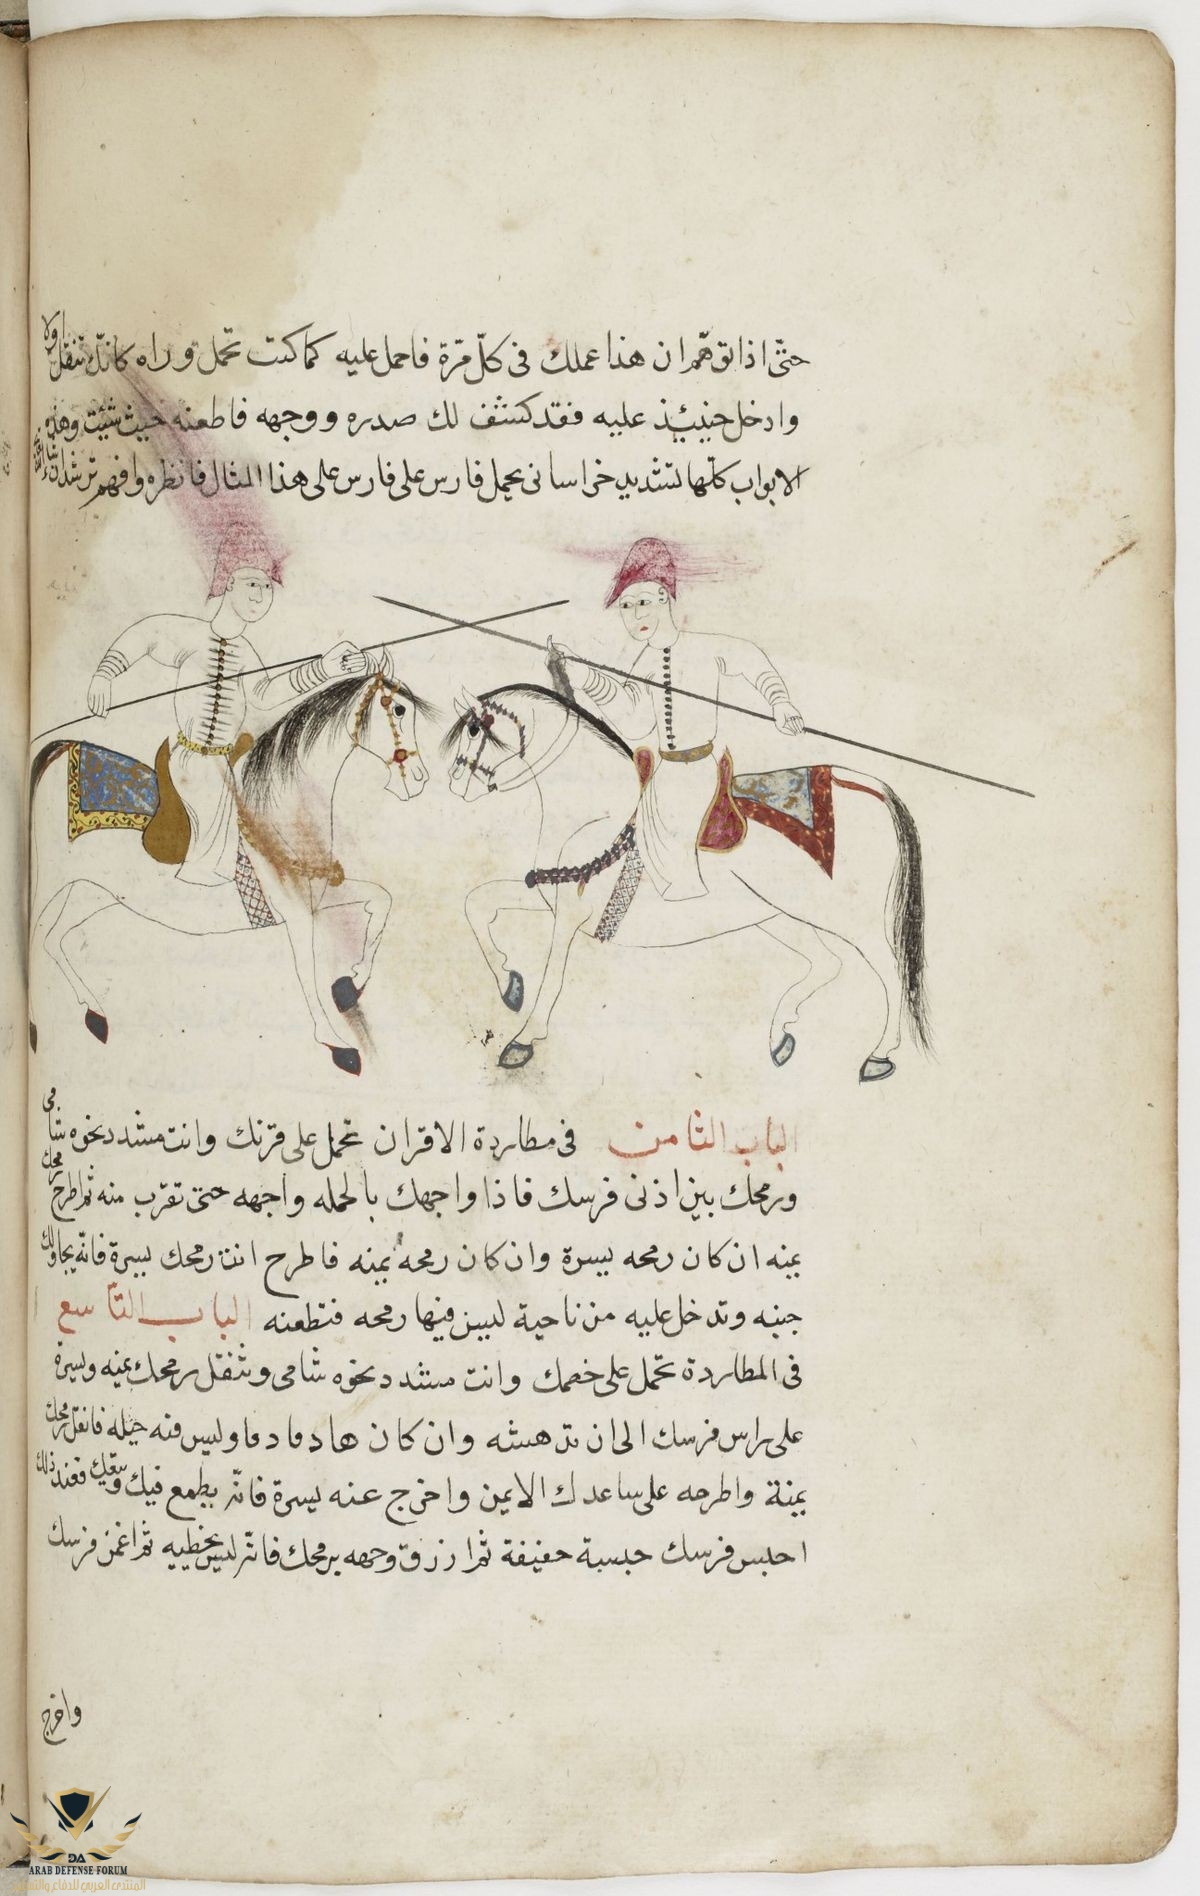 حتّى اذا توهّم ان هذا عملك فى كلّ مرّة فاحمل عليه كما كنت تحمل وراه كانّك تنقل اولا
وادخل حينئذ عليه فقد كشف لك صدره ووجهه فاطعنه حيث شئت وهذه
الابواب كلّها لتشديد خراسانى يحمل فارس على فارس على هذا المثال فانظره وافهم ترشد ان شاء
الباب الثامن فى مطاردة الاقران تحمل على قرنك وانت مشدد نحوه شامى
ورمحك بين اذنى فرسك فاذا واجهك بالحمله واجهه حتى تقرب منه ثم اطرح رمحك
يمنه ان كان رمحه يسرة وان كان رمحه يمنه فاطرح انت رمحك يسرة فانّه يجاولك
جنبه وتدخل عليه من ناحية ليس فيها رمحه فتطعنه الباب التاسع
فى المطاردة تحمل على خصمك وانت مشدد نحوه شامى وتنقل رمحك يمنه ويسرة
على راس فرسك الى ان تدهشه وان كان هادما دما وليس فيه حيله فانقل رمحك
يمنة واطرحه على ساعدك الايمن واخرج عنه يسرة فانّه يطمع فيك ويتبعك فعند ذلك
احبس فرسك حبسة خفيفة ثم ازرق وجهه برمحك فانّه ليس يخطيه ثم اغمز فرسك
واخرج
ARAB DEFENSE FORUM
المنتدى العربي للدفاع والتسليح